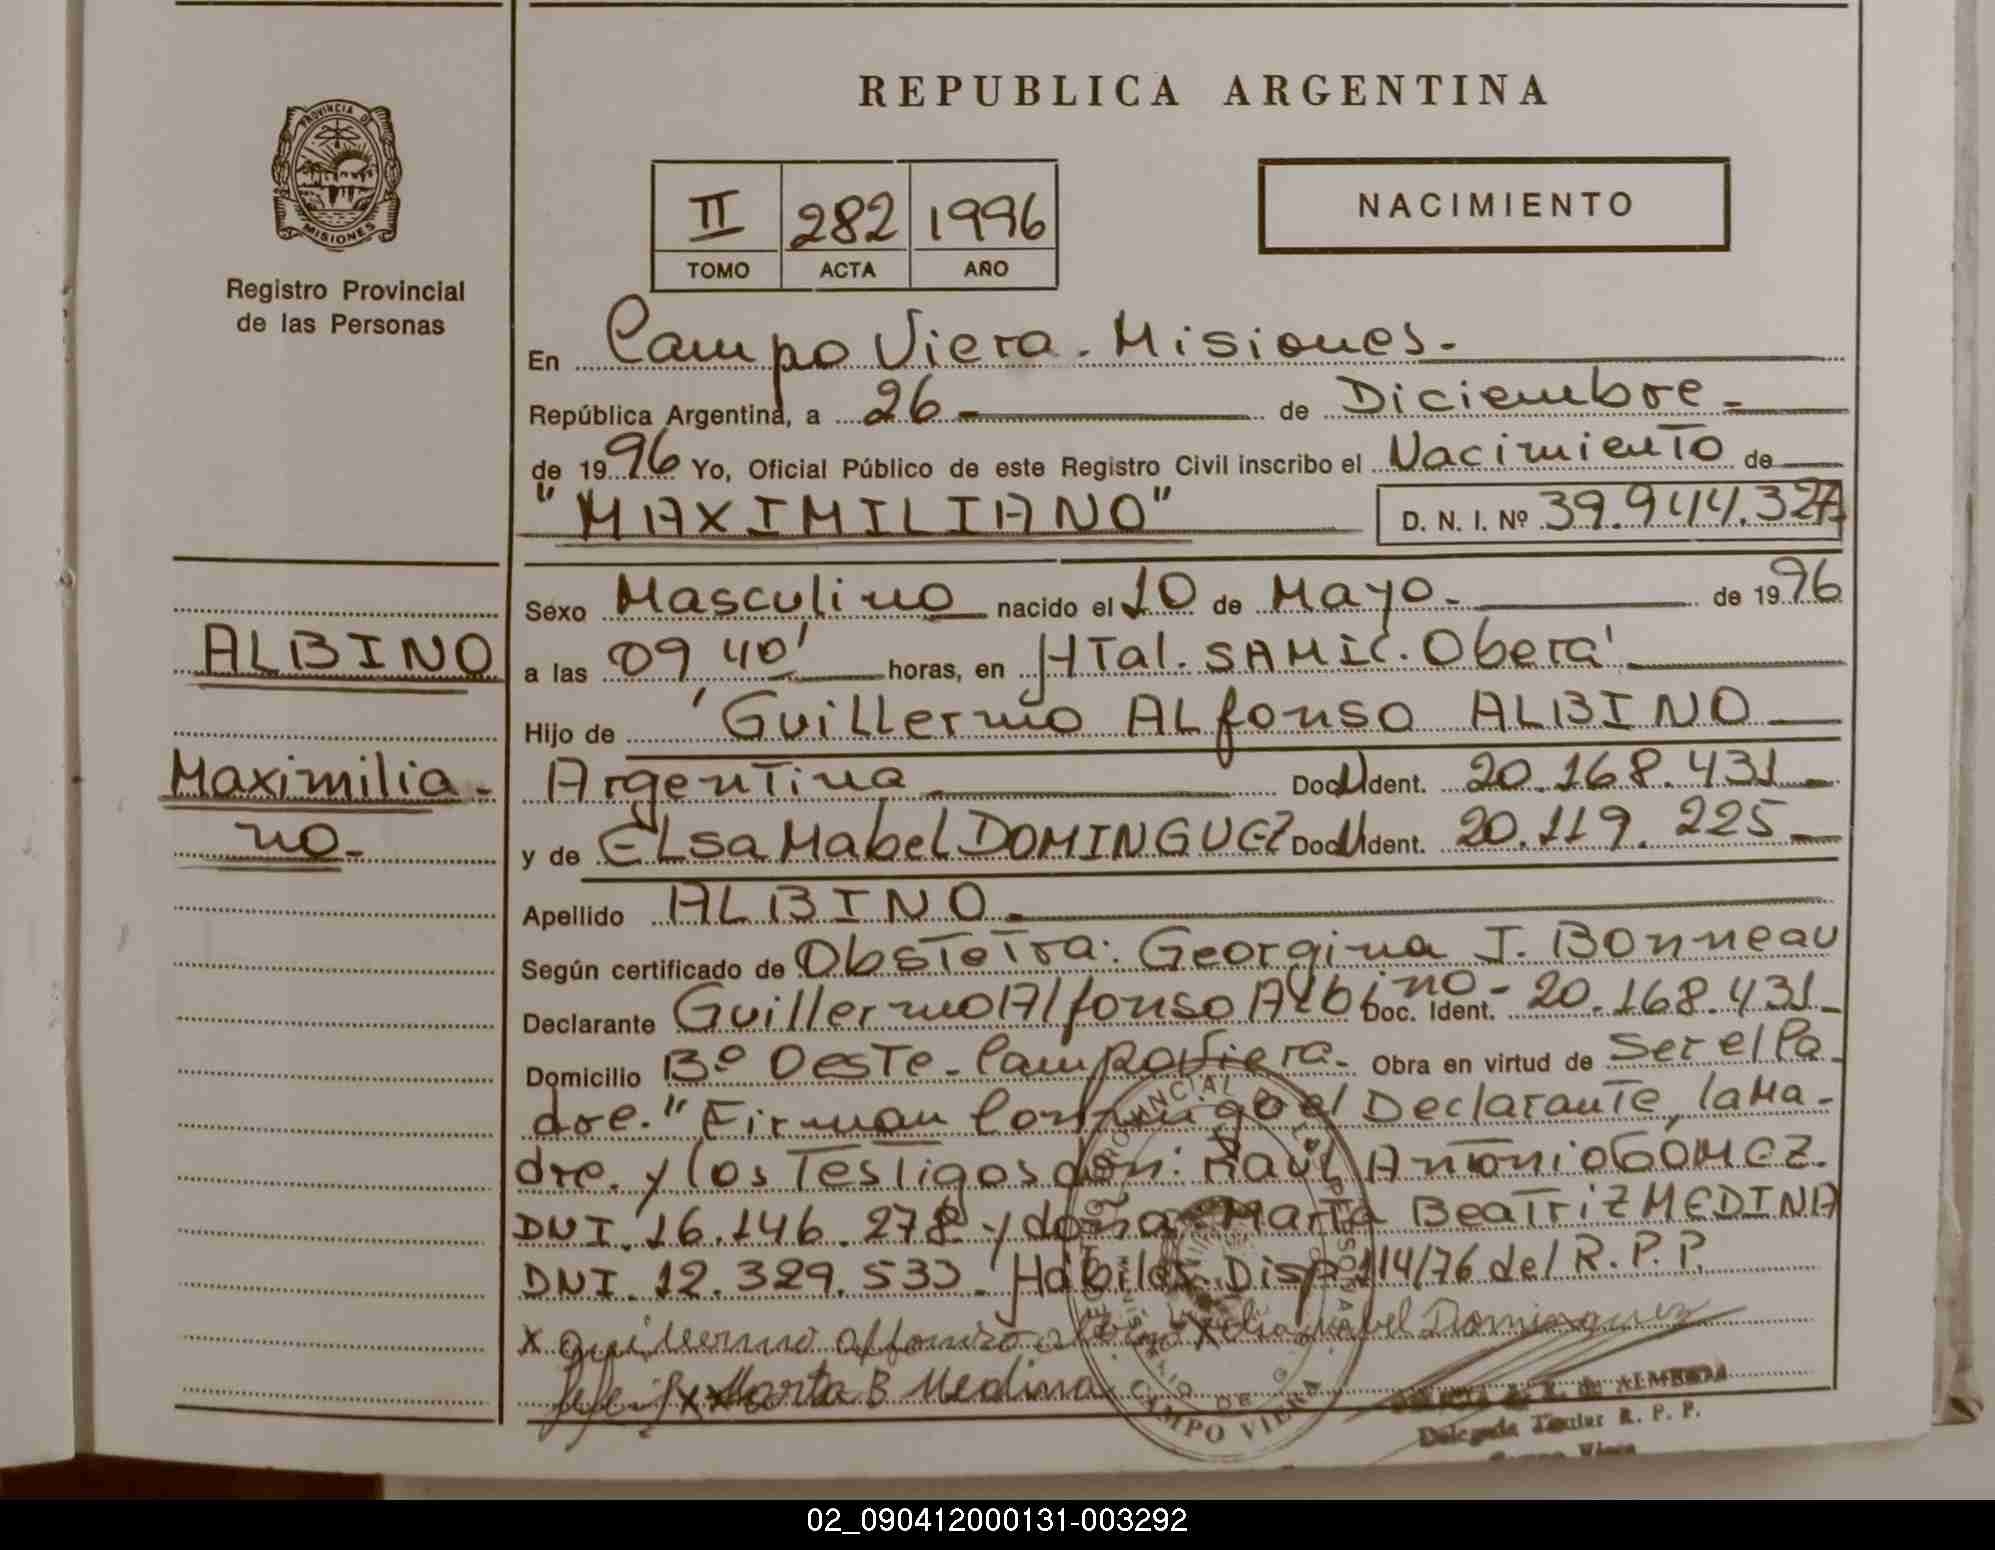 REPUBLICA ARGENTINA
PROVINCIA DE
MISIONES
Registro Provincial
de las Personas
II 282 1996
TOMO ACTA AÑO
NACIMIENTO
En Campo Viera - Misiones.-
República Argentina, a 26 - de Diciembre -
de 1996 Yo, Oficial Público de este Registro Civil inscribo el Nacimiento de
"MAXIMILIANO" D. N. I. Nº 39.944.327
Sexo Masculino nacido el 10 de Mayo - de 1996
ALBINO
a las 09 40' horas, en HTal. SAMIC. Oberá
Hijo de Guillermo ALfonso ALBINO
Maximilia-
no-
Argentina Doc.U Ident. 20.168.431-
y de ELsa Mabel DOMINGUEZ Doc.U Ident. 20.119.225-
Apellido ALBINO-
Según certificado de Obstetra: Georgina J. Bonneau
Declarante Guillermo Alfonso Albino- Doc. Ident. 20.168.431-
Domicilio Bº Oeste - Campo Viera- Obra en virtud de Ser el Pa-
dre." Firman Conmigo el Declarante, la Ma-
dre. y los Testigos don: Raúl Antonio GÓMEZ.
DNI. 16.146.278 y doña Marta BeaTriz MEDINA
DNI. 12.329.533. Hábiles. Disp 114/76 del R. P. P.
x guillermo alfonso albino x elsa mabel Dominguez
x Marta B Medina
CAMPO VIERA
de ALMEIDA
Delegada Titular R. P. P.
Campo Viera
02_090412000131-003292